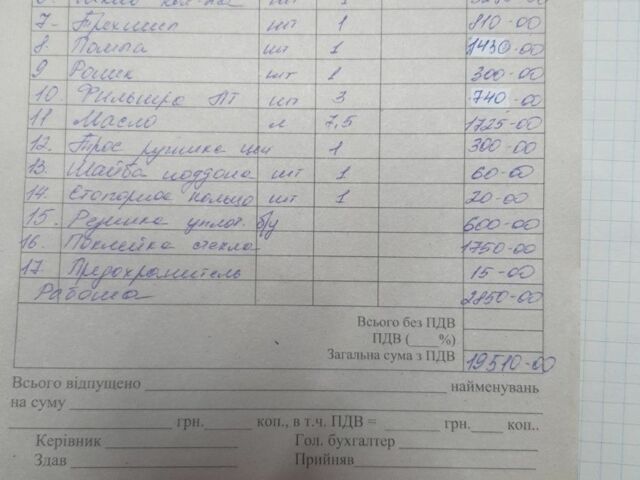 7- шт 1 810-00
8. Помпа шт 1 1430-00
9 Ролик шт 1 300-00
10. Фильтра ПТ шт 3 740-00
11 Масло л 7,5 1725-00
12. Трос ручника 1 300-00
13. Шайба поддона шт 1 60-00
14. Стопорное кольцо шт 1 20-00
15. Резинка уплот. б/у 600-00
16. Поклейка стекла 1750-00
17. Предохранитель 15-00
Работа 2850-00
Всього без ПДВ
ПДВ (____%)
Загальна сума з ПДВ 19510-00
Всього відпущено ____ найменувань
на суму ____
____ грн.____ коп., в т.ч. ПДВ = ____ грн.____ коп..
Керівник ____ Гол. бухгалтер ____
Здав ____ Прийняв____